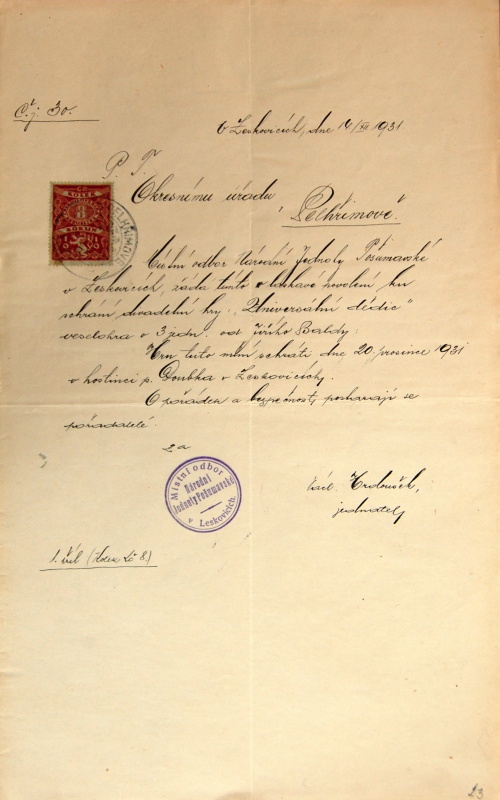 Č. j. 30.
V Leskovicích, dne 14/XII 1931
P. T.
Okresnímu úřadu
v Pelhřimově.
ČS
KOLEK
3
KORUNY
Místní odbor Národní Jednoty Pošumavské
v Leskovicích, žádá tímto o laskavé povolení ku
sehrání divadelní hry: „Universální dědic"
veselohra o 3 jedn. od Jiřího Baldy.
Hru tuto míní sehráti dne 20. prosince 1931
v hostinci p. Doubka v Leskovicích.
O pořádek a bezpečnost, postarají se
pořadatelé.
za
Místní odbor
Národní
Jednoty Pošumavské
v Leskovicích.
jednatel,
1. příl.
23